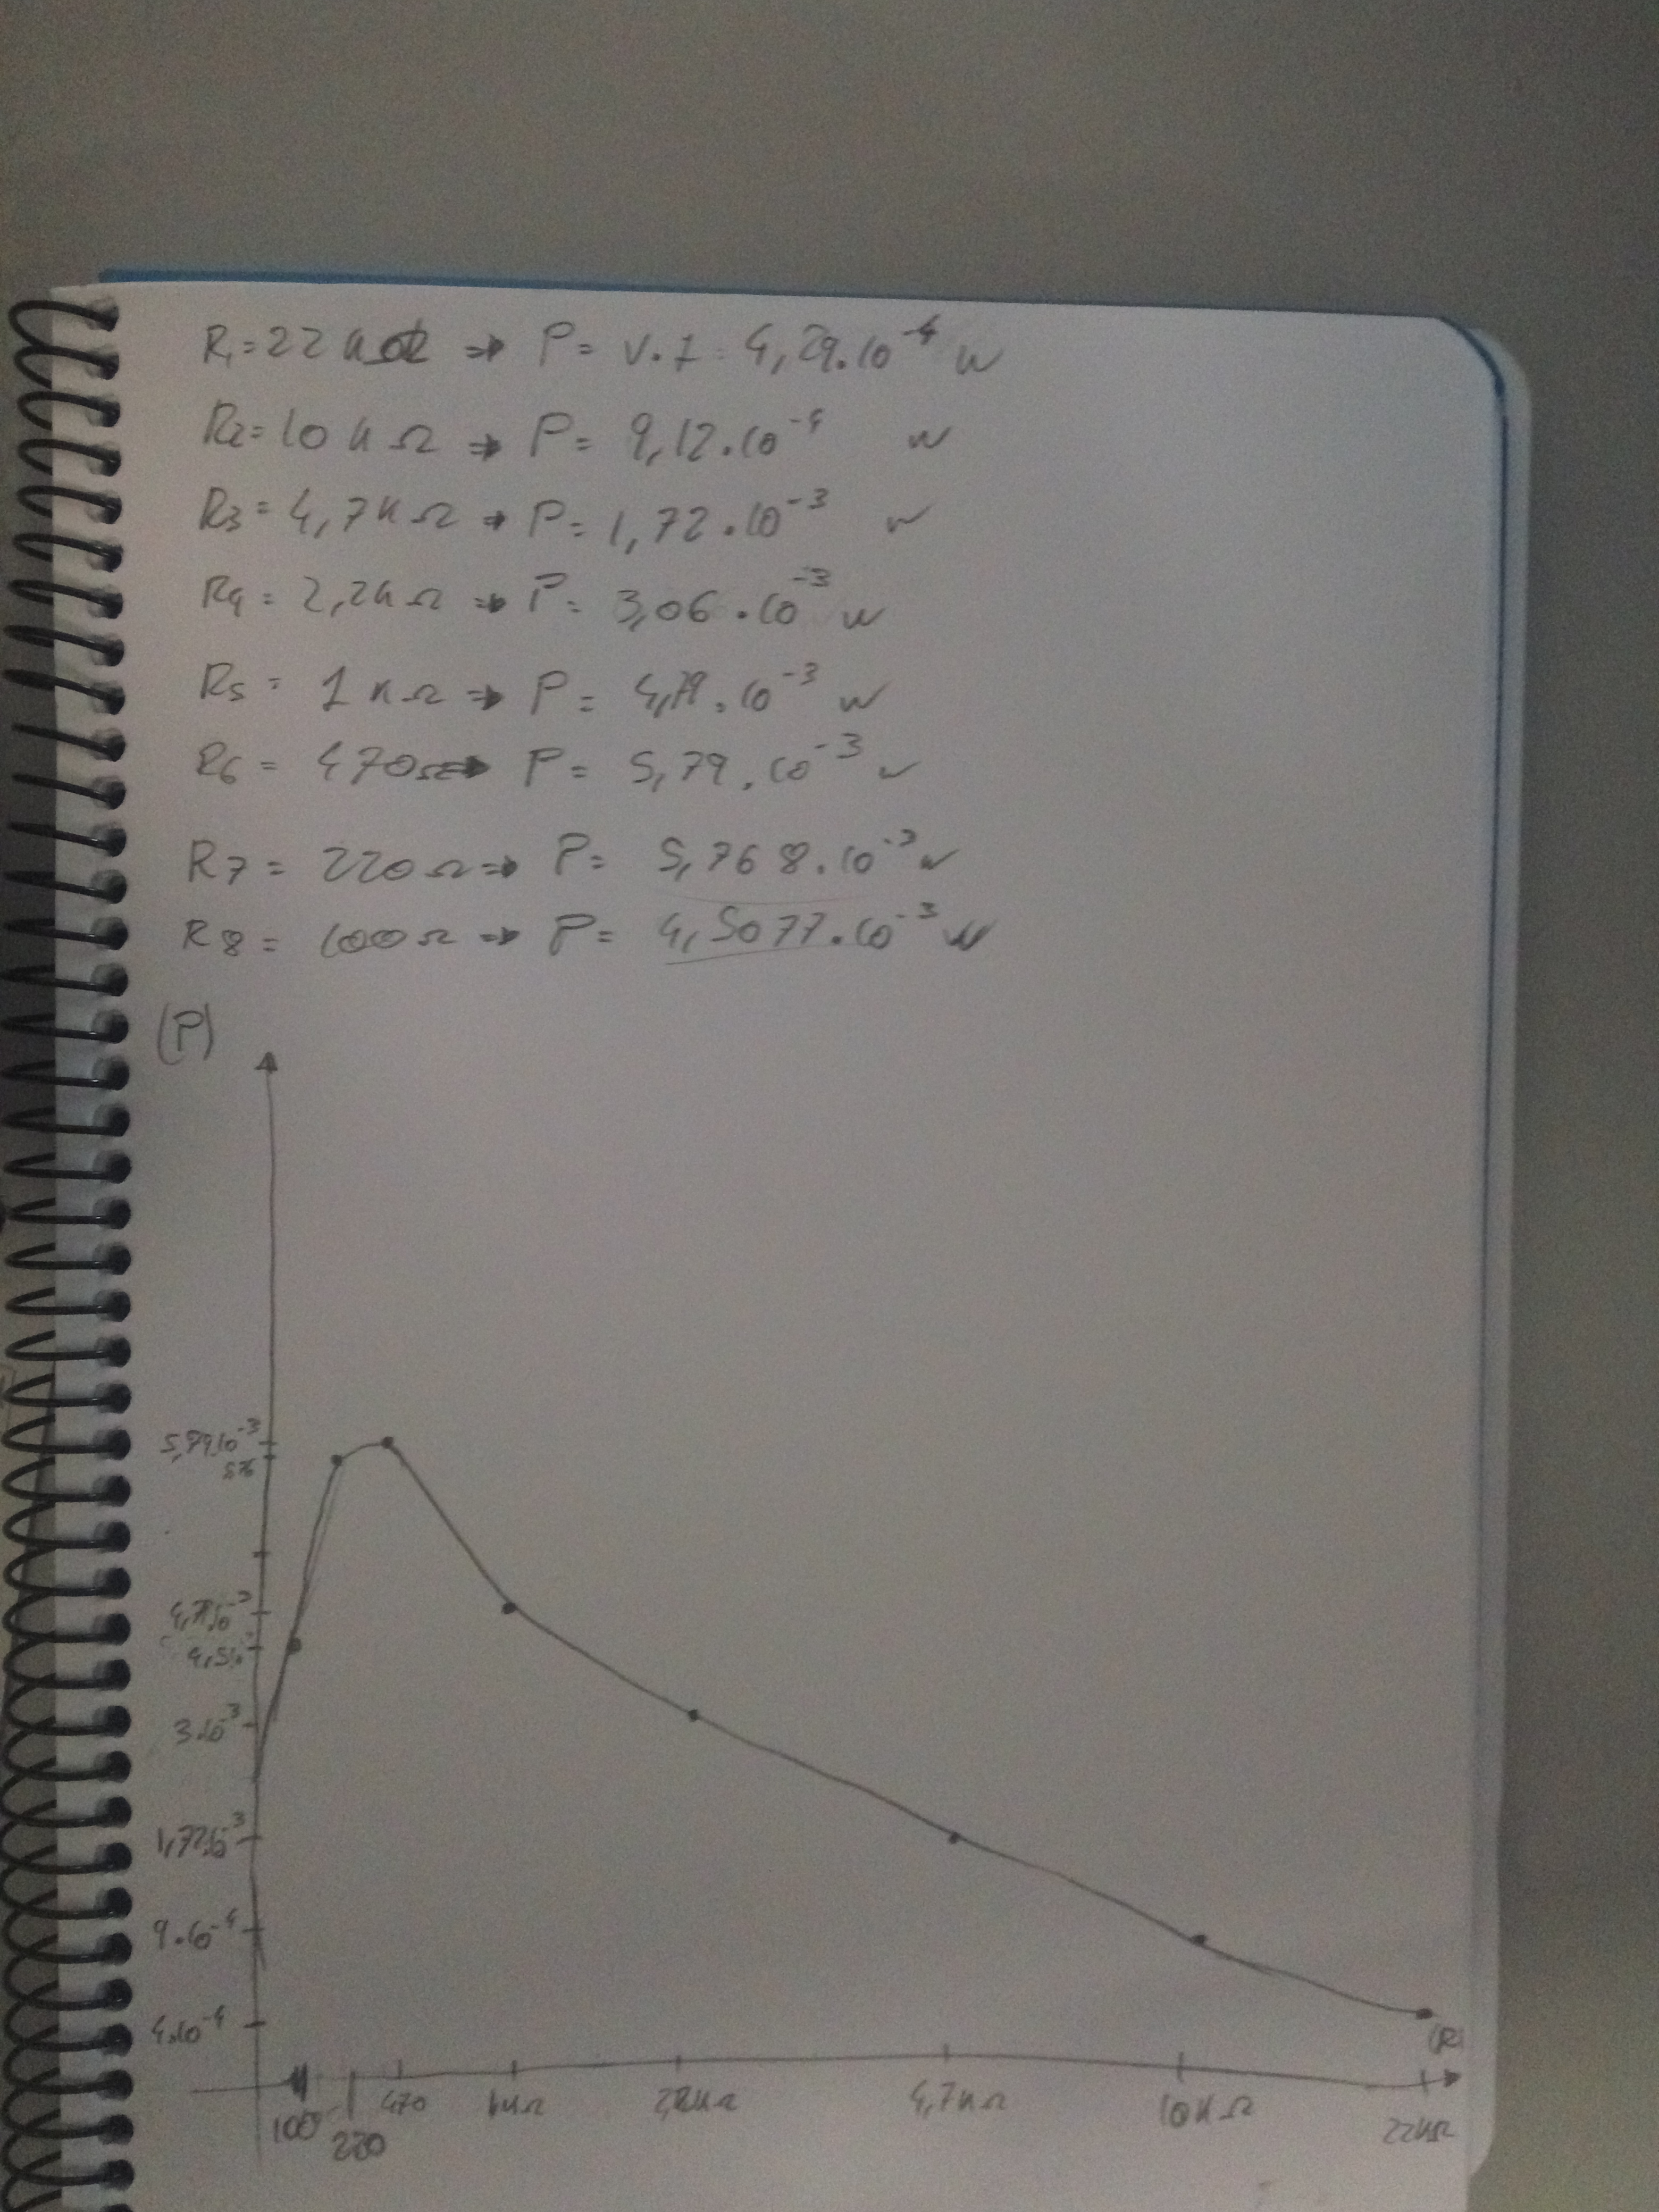 R₁=22KΩ ⇒ P= V.I= 4,29.10⁻⁴ W
R₂=10KΩ ⇒ P= 9,12.10⁻⁴ W
R₃=4,7KΩ ⇒ P= 1,72.10⁻³ W
R₄=2,2KΩ ⇒ P= 3,06.10⁻³ W
R₅= 1KΩ ⇒ P= 4,79.10⁻³ W
R₆= 470Ω ⇒ P= 5,79.10⁻³ W
R₇= 220Ω ⇒ P= 5,768.10⁻³ W
R₈= 100Ω ⇒ P= 4,5077.10⁻³ W
(P)
5,79.10⁻³
5,76
4,79.10⁻³
3.10⁻³
1,72.10⁻³
9.10⁻⁴
4.10⁻⁴
(R)
100 220 470 1KΩ 2,2KΩ 4,7KΩ 10KΩ 22KΩ